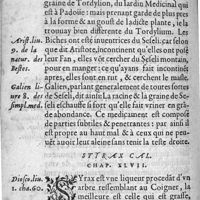 graine de Tordylion, du Iardin Medicinal qui
est à Padoüe: mais prenant garde de plus pres
à la forme & au goust de ladicte plante, ie la
trouuay bien differente du Tordylium. Les
Arist. lin. Biches ont esté inuentrices du Seseli: car selon
9. de la que dit Aristote, incontinent qu'elles ont fait
natur. des leur fan, elles vont cercher du Seseli montain,
Bestes. pour en manger: & en ayans fait incontinent
apres, s'en retournent, & cerchent le masle.
Galien li- Galien, parlant generalement de toutes sortes
ure 8. des de Seseli, dit ainsi, La racine & la graine de Se-
simpl. med. seli eschauffe si fort qu'elle fait vriner en gran-
de abondance. Ce medicament est composé
de parties subtiles & penetrantes: par ainsi il
est propre au haut mal & à ceux qui ne peu-
uent auoir leur haleine que tenans le col droit.
STYRAX CAL.
CHAP. XLVII.
Diosc. lin. STyrax est vne liqueur procedãt d'vn
1. cha. 60. arbre ressemblant au Coigner, la
meilleure est celle qui est grasse,